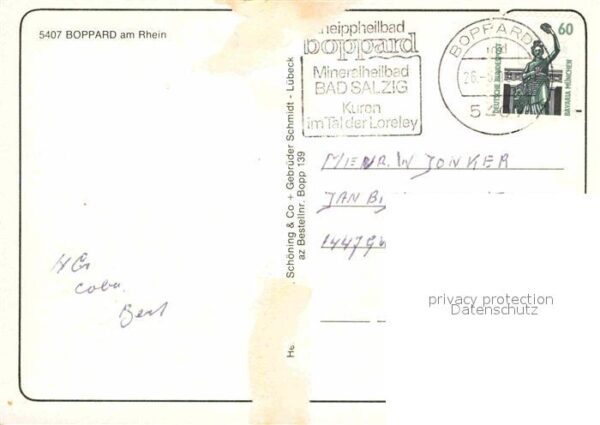 5407 BOPPARD am Rhein
neippheilbad
boppard
Mineralheilbad
BAD SALZIG
Kuren
im Tal der Loreley
BOPPARD
26.
54
60
DEUTSCHE BUNDESPOST
BAVARIA MÜNCHEN
Schöning & Co + Gebrüder Schmidt - Lübeck
az Bestellnr. Bopp 139
MEINR. W JONKER
JAN B
1447G
HG
Bert
privacy protection
Datenschutz